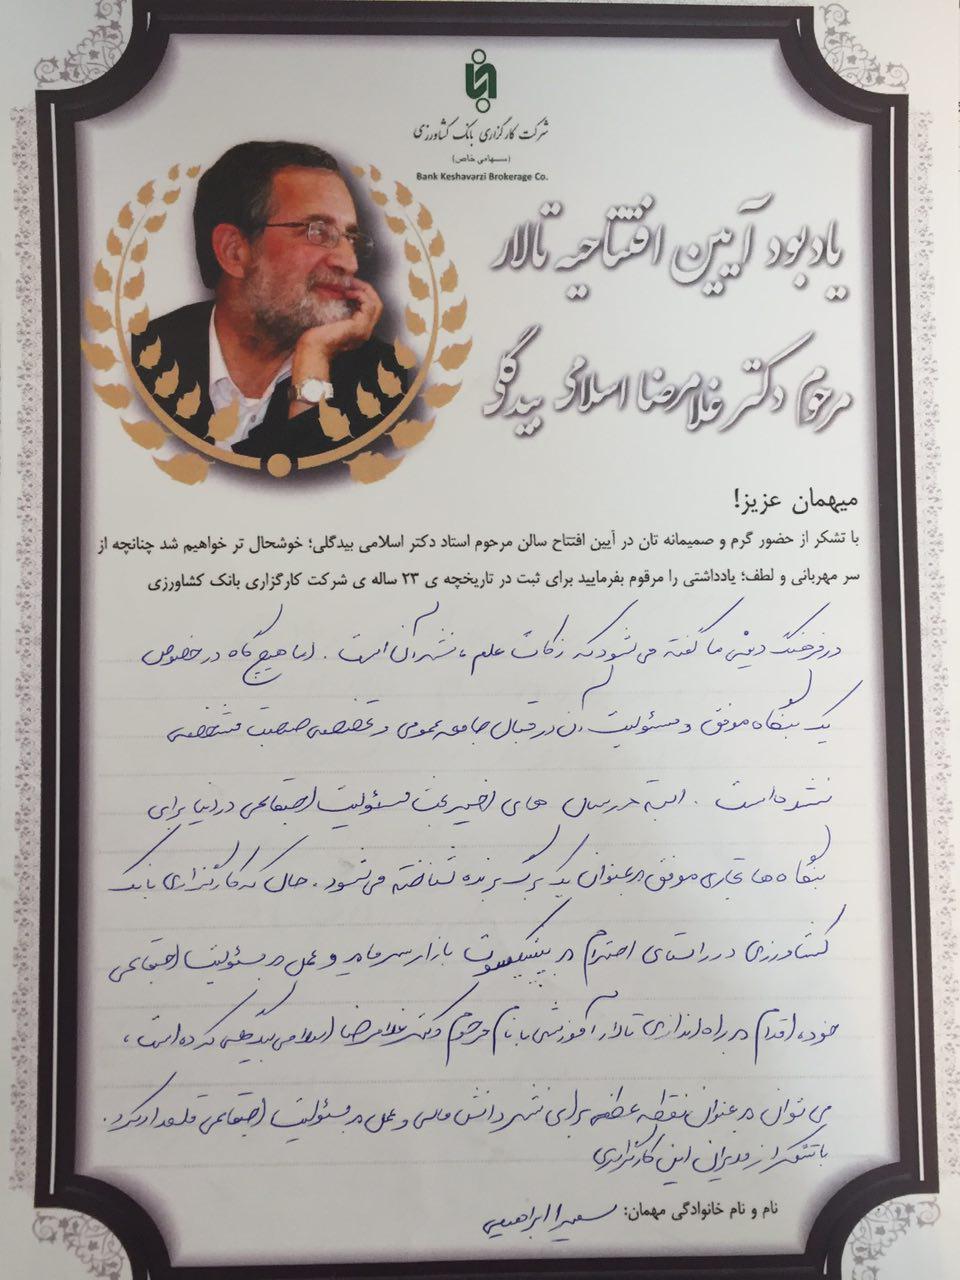 شرکت کارگزاری بانک کشاورزی
(سهامی خاص)
Bank Keshavarzi Brokerage Co.
یادبود آیین افتتاحیه تالار
مرحوم دکتر غلامرضا اسلامی بیدگلی
میهمان عزیز!
با تشکر از حضور گرم و صمیمانه تان در آیین افتتاح سالن مرحوم استاد دکتر اسلامی بیدگلی؛ خوشحال تر خواهیم شد چنانچه از
سر مهربانی و لطف؛ یادداشتی را مرقوم بفرمایید برای ثبت در تاریخچه ی ۲۳ ساله ی شرکت کارگزاری بانک کشاورزی
در فرهنگ دینی ما گفته می شود که زکات علم، نشر آن است. اما هیچ گاه در خصوص
یک بنگاه موفق و مسئولیت آن در قبال جامعه عمومی و تخصصی صحبت مشخصی
نشده است. البته در سال های اخیر بحث مسئولیت اجتماعی در دنیا برای
بنگاه ها تجاری موفق به عنوان یک برگ برنده شناخته می شود. حال که کارگزاری بانک
کشاورزی در راستای احترام به پیشکسوت بازار سرمایه و عمل به مسئولیت اجتماعی
خود، اقدام به راه اندازی تالار آموزشی با نام مرحوم دکتر غلامرضا اسلامی بیدگلی کرده است،
می توان به عنوان نقطه عطفی برای نشر دانش مالی و عمل به مسئولیت اجتماعی قلمداد کرد.
با تشکر از مدیران این کارگزاری
نام و نام خانوادگی مهمان: سمیرا ابراهیمی